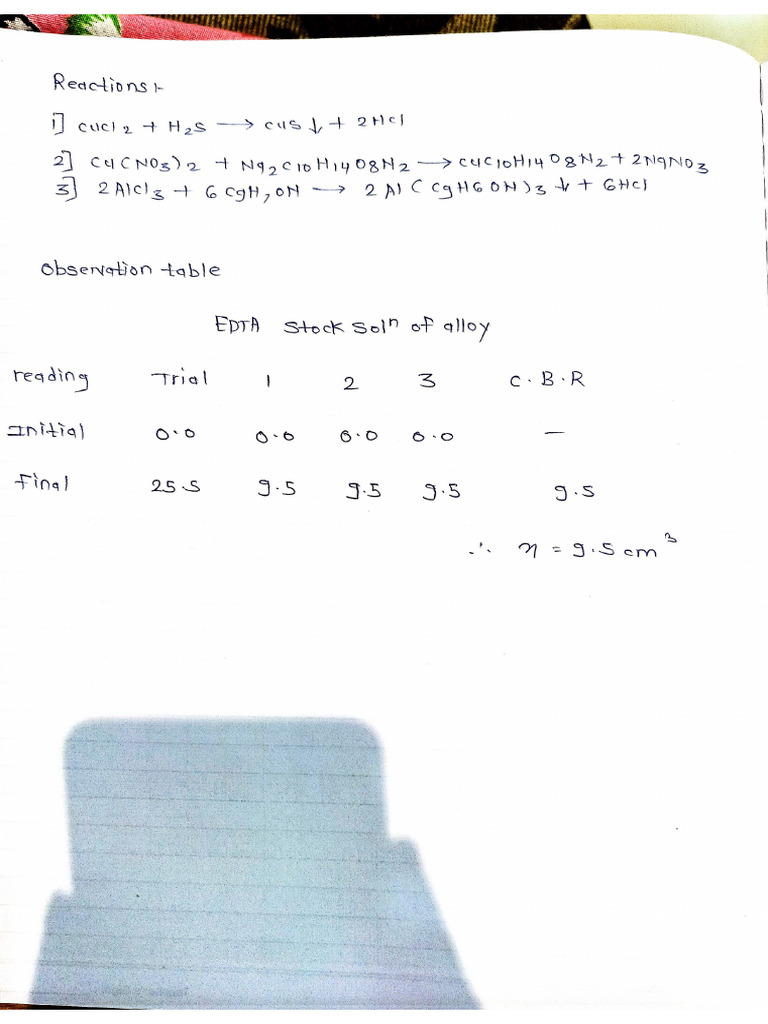 Reactions :-
1] CuCl2 + H2S → CuS ↓ + 2HCl
2] Cu(NO3)2 + Na2C10H14O8N2 → CuC10H14O8N2 + 2NaNO3
3] 2AlCl3 + 6C9H7ON → 2Al(C9H6ON)3 ↓ + 6HCl
Observation table
EDTA Stock Soln of alloy
reading Trial 1 2 3 C.B.R
Initial 0.0 0.0 0.0 0.0 —
Final 25.5 9.5 9.5 9.5 9.5
∴ n = 9.5 cm3